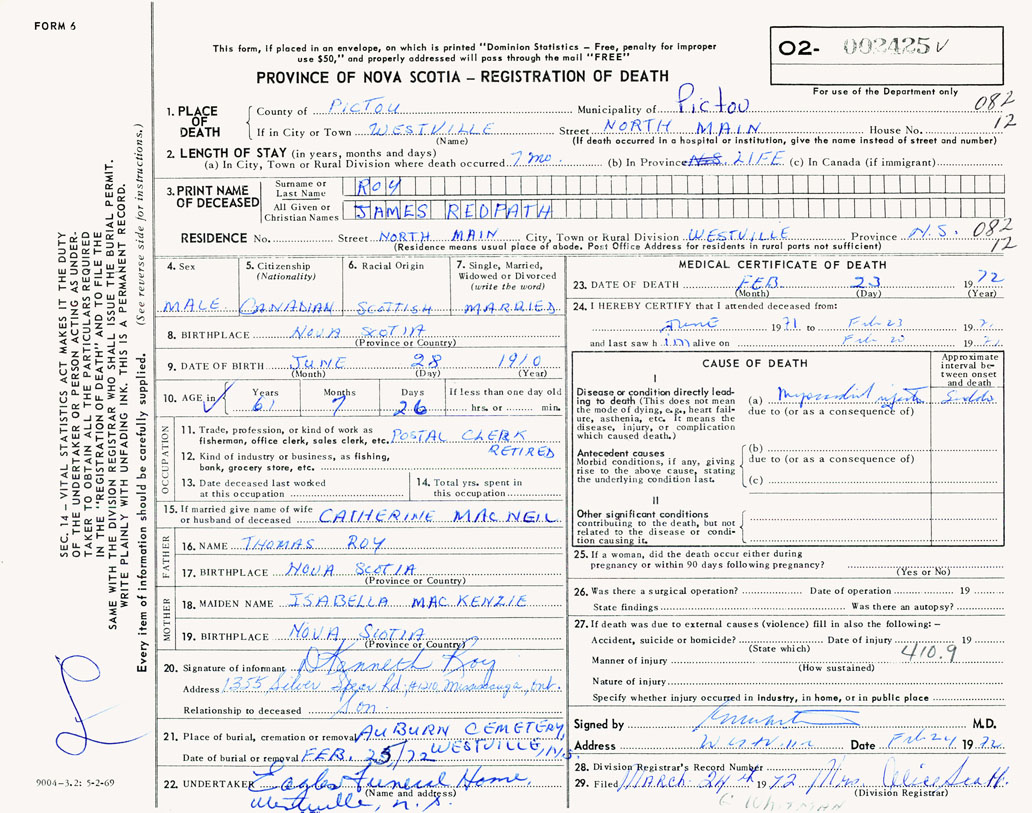 FORM 6
This form, if placed in an envelope, on which is printed "Dominion Statistics – Free, penalty for improper
use $50," and properly addressed will pass through the mail "FREE"
PROVINCE OF NOVA SCOTIA – REGISTRATION OF DEATH
02- 002425
For use of the Department only
1. PLACE OF DEATH County of PICTOU Municipality of Pictou 082
If in City or Town WESTVILLE Street NORTH MAIN House No. 12
(Name) (If death occurred in a hospital or institution, give the name instead of street and number)
2. LENGTH OF STAY (in years, months and days)
(a) In City, Town or Rural Division where death occurred 7 mo. (b) In Province N.S. LIFE (c) In Canada (if immigrant)
3. PRINT NAME OF DECEASED
Surname or Last Name ROY
All Given or Christian Names JAMES REDPATH
RESIDENCE No. Street NORTH MAIN City, Town or Rural Division WESTVILLE Province N.S. 082
(Residence means usual place of abode. Post Office Address for residents in rural parts not sufficient) 12
4. Sex
MALE
5. Citizenship (Nationality)
CANADIAN
6. Racial Origin
SCOTTISH
7. Single, Married, Widowed or Divorced (write the word)
MARRIED
8. BIRTHPLACE NOVA SCOTIA
(Province or Country)
9. DATE OF BIRTH JUNE 28 1910
(Month) (Day) (Year)
10. AGE in Years Months Days If less than one day old
61 7 26 hrs. or min.
OCCUPATION
11. Trade, profession, or kind of work as
fisherman, office clerk, sales clerk, etc. POSTAL CLERK
RETIRED
12. Kind of industry or business, as fishing,
bank, grocery store, etc.
13. Date deceased last worked
at this occupation
14. Total yrs. spent in
this occupation
15. If married give name of wife
or husband of deceased CATHERINE MAC NEIL
FATHER
16. NAME THOMAS ROY
17. BIRTHPLACE NOVA SCOTIA
(Province or Country)
MOTHER
18. MAIDEN NAME ISABELLA MAC KENZIE
19. BIRTHPLACE NOVA SCOTIA
(Province or Country)
20. Signature of informant D Kenneth Roy
Address 1355 Silver Spear Rd #1210 Mississauga, Ont.
Relationship to deceased Son
21. Place of burial, cremation or removal AUBURN CEMETERY,
WESTVILLE, N.S.
Date of burial or removal FEB. 25/72
22. UNDERTAKER Eagles Funeral Home,
(Name and address)
Westville, N.S.
MEDICAL CERTIFICATE OF DEATH
23. DATE OF DEATH FEB. 23 1972
(Month) (Day) (Year)
24. I HEREBY CERTIFY that I attended deceased from:
June 1971 to Feb 23 19
and last saw him alive on Feb 20 19
CAUSE OF DEATH
Approximate interval between onset and death
I
Disease or condition directly lead-
ing to death (This does not mean
the mode of dying, e.g., heart fail-
ure, asthenia, etc. It means the
disease, injury, or complication
which caused death.)
(a) Myocardial
due to (or as a consequence of)
Antecedent causes
Morbid conditions, if any, giving
rise to the above cause, stating
the underlying condition last.
(b)
due to (or as a consequence of)
(c)
II
Other significant conditions
contributing to the death, but not
related to the disease or condi-
tion causing it.
25. If a woman, did the death occur either during
pregnancy or within 90 days following pregnancy?
(Yes or No)
26. Was there a surgical operation? Date of operation 19
State findings Was there an autopsy?
27. If death was due to external causes (violence) fill in also the following: –
Accident, suicide or homicide? Date of injury 19
(State which)
410.9
Manner of injury
(How sustained)
Nature of injury
Specify whether injury occurred in industry, in home, or in public place
Signed by M.D.
Address Westville Date Feb 24 1972
28. Division Registrar's Record Number
29. Filed MARCH 24th 1972 Mrs. Alice Scott
(Division Registrar)
SEC. 14 – VITAL STATISTICS ACT MAKES IT THE DUTY
OF THE UNDERTAKER OR PERSON ACTING AS UNDER-
TAKER TO OBTAIN ALL THE PARTICULARS REQUIRED
IN THE "REGISTRATION OF DEATH" AND TO FILE THE
SAME WITH THE DIVISION REGISTRAR WHO SHALL ISSUE THE BURIAL PERMIT.
WRITE PLAINLY WITH UNFADING INK. THIS IS A PERMANENT RECORD.
Every item of information should be carefully supplied. (See reverse side for instructions.)
9004-3.2: 5-2-69